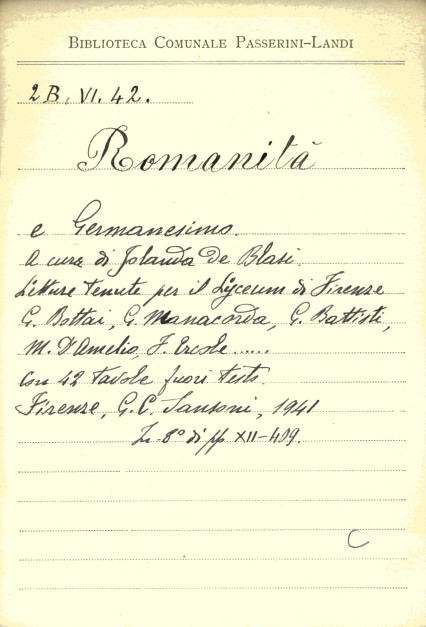 BIBLIOTECA COMUNALE PASSERINI-LANDI
2 B, VI. 42.
Romanità
e Germanesimo.
A cura di Jolanda De Blasi.
Letture tenute per il Lyceum di Firenze
G. Bottai, G. Manacorda, G. Battisti,
M. D'Amelio, F. Ercole.....
con 42 tavole fuori testo.
Firenze, G. C. Sansoni, 1941
In-8° di pp XII-409.
C